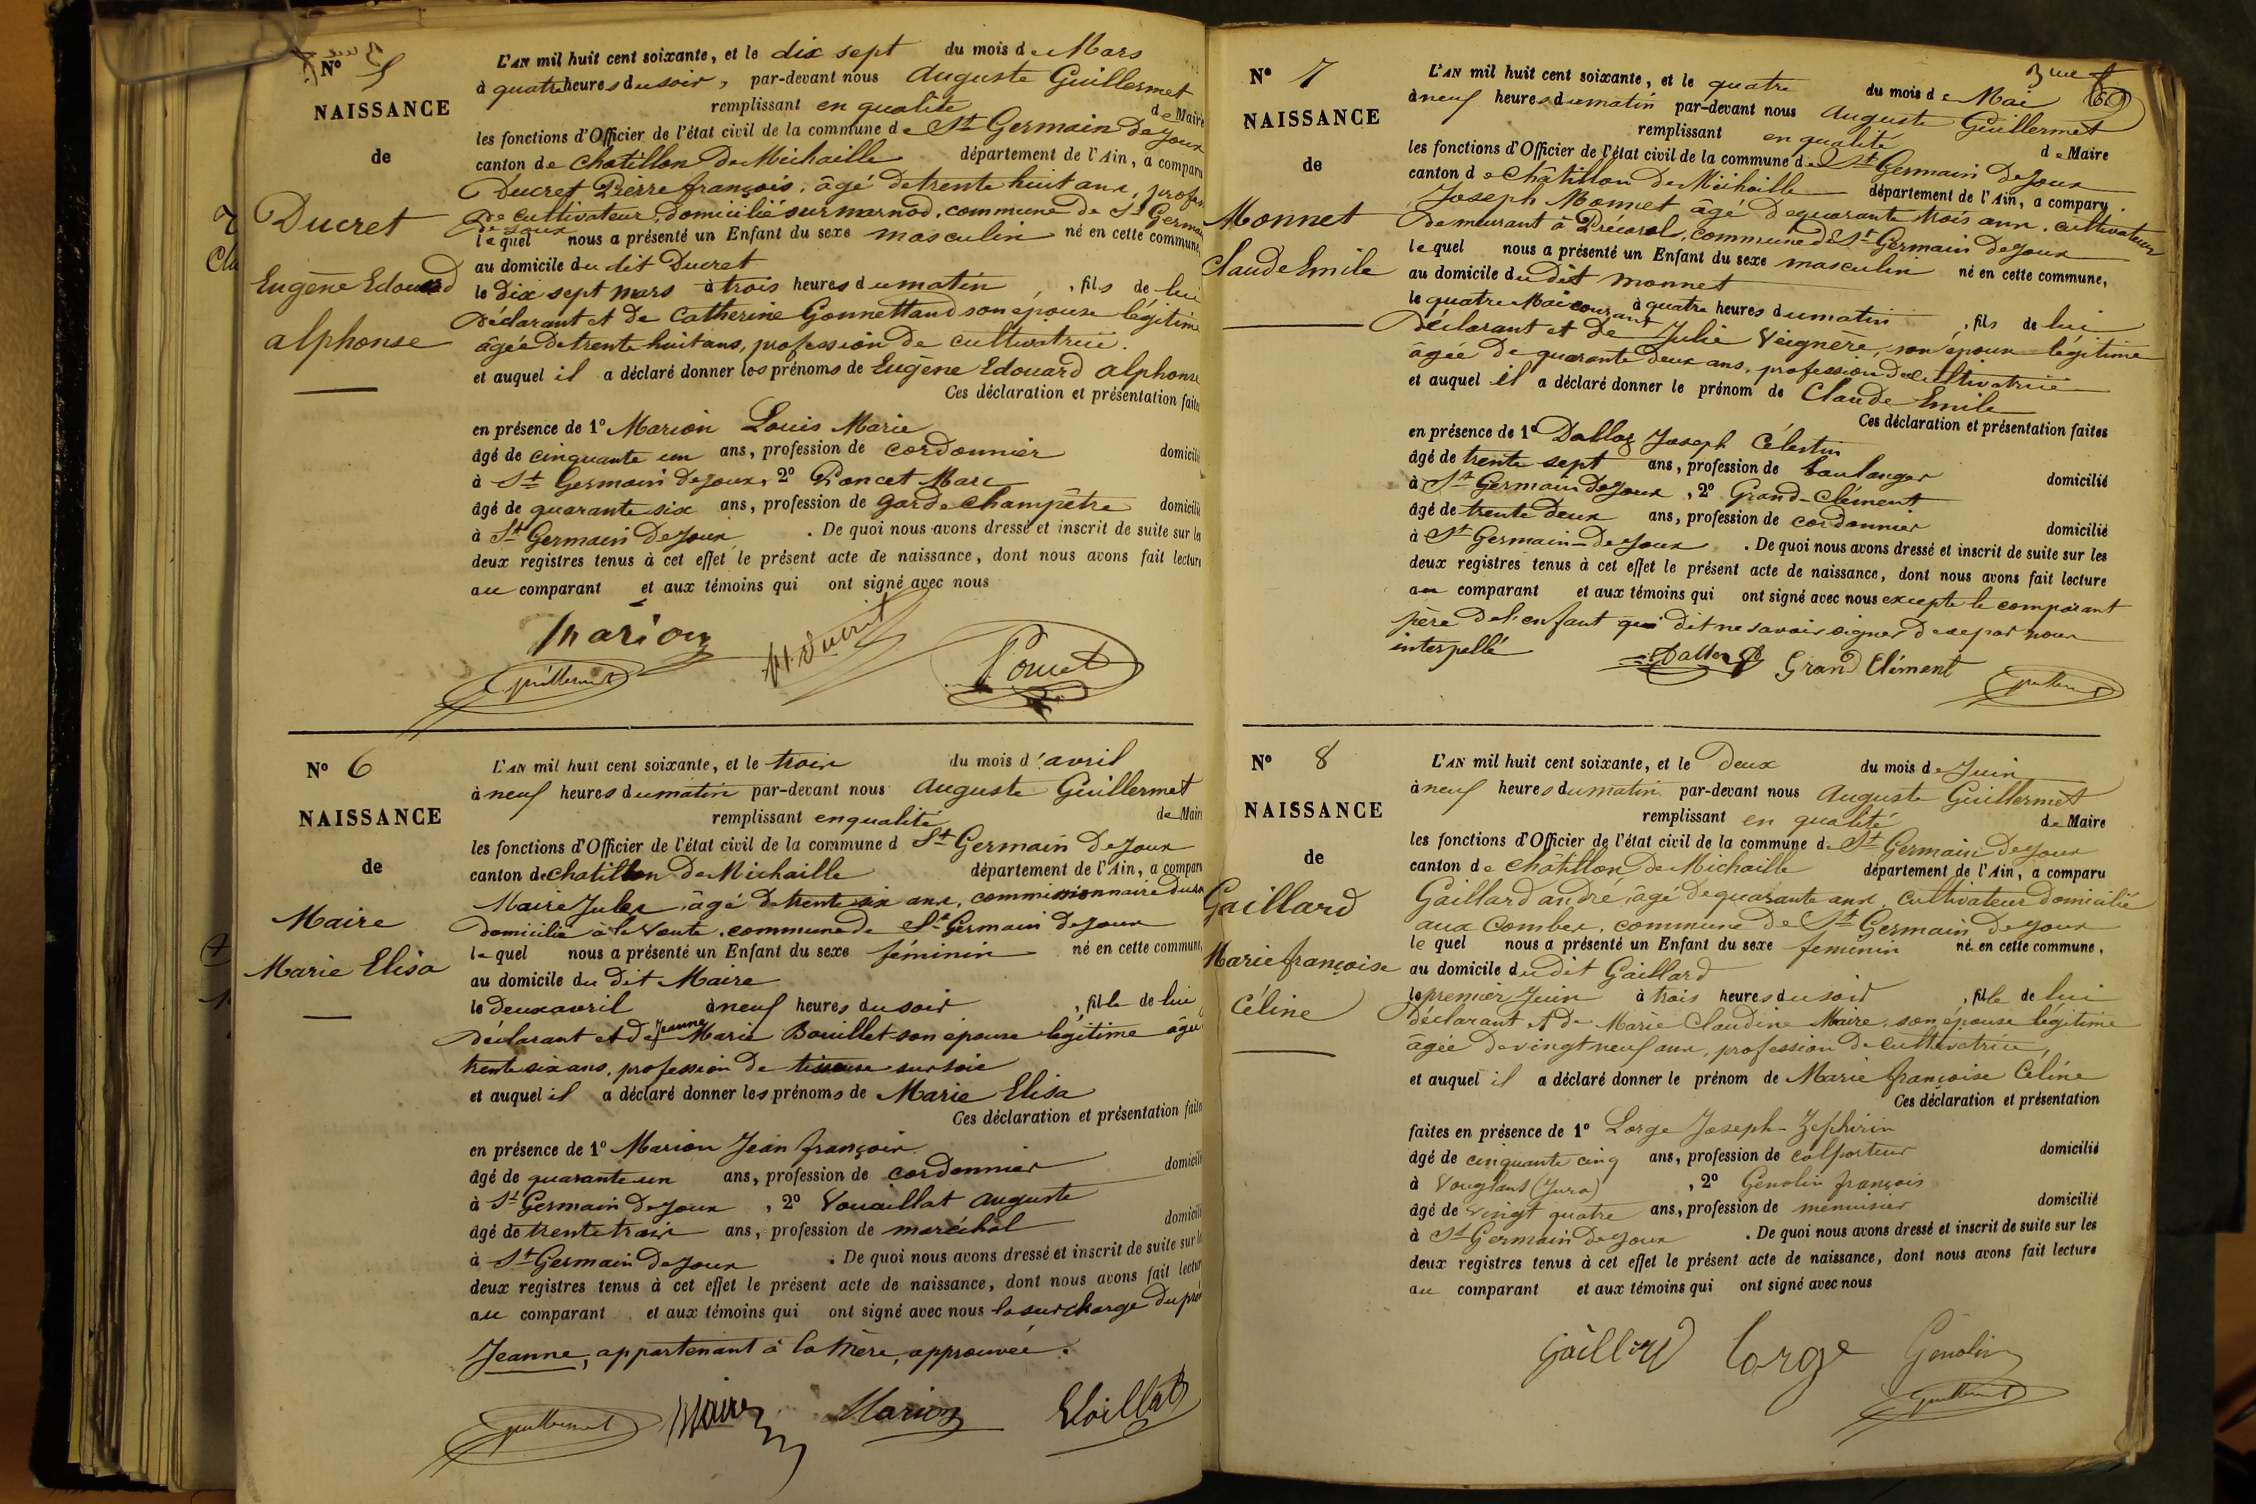 N° 5
NAISSANCE
de
Ducret
Eugène Edouard
alphonse
L'AN mil huit cent soixante, et le dix sept du mois de Mars
à quatre heures du soir, par-devant nous Auguste Guillermet
remplissant en qualité de Maire
les fonctions d'Officier de l'état civil de la commune de St Germain de Joux
canton de Chatillon de Michaille département de l'Ain, a comparu
Ducret Pierre françois, âgé de trente huit ans, profes
de cultivateur, domicilié sur marnod, commune de St Germain
de Joux
lequel nous a présenté un Enfant du sexe masculin né en cette commune,
au domicile du dit Ducret
le Dix sept mars à trois heures du matin, fils de lui
Déclarant et de Catherine Gonnettand son épouse légitime
âgée de trente huit ans, profession de cultivatrice.
et auquel il a déclaré donner les prénoms de Eugène Edouard alphonse
Ces déclaration et présentation faites
en présence de 1° Marion Louis Marie
âgé de cinquante un ans, profession de cordonnier domicilié
à St Germain de Joux, 2° Poncet Marc
âgé de quarante six ans, profession de garde champêtre domicilié
à St Germain de Joux. De quoi nous avons dressé et inscrit de suite sur les
deux registres tenus à cet effet le présent acte de naissance, dont nous avons fait lecture
au comparant et aux témoins qui ont signé avec nous
Marion
Guillermet Ducret Poncet
N° 6
NAISSANCE
de
Maire
Marie Elisa
L'AN mil huit cent soixante, et le trois du mois d'avril
à neuf heures du matin par-devant nous Auguste Guillermet
remplissant en qualité de Maire
les fonctions d'Officier de l'état civil de la commune d St Germain de Joux
canton de Chatillon de Michaille département de l'Ain, a comparu
Maire Jules, âgé de trente six ans, commissionnaire
domicilié à la Voute, commune de St Germain de Joux
lequel nous a présenté un Enfant du sexe féminin né en cette commune,
au domicile du dit Maire
le Deux avril à neuf heures du soir, fille de lui
Déclarant et de Jeanne Marie Bouillet son épouse légitime âgée
trente six ans, profession de tisseuse sur soie
et auquel il a déclaré donner les prénoms de Marie Elisa
Ces déclaration et présentation faites
en présence de 1° Marion Jean françois
âgé de quarante un ans, profession de cordonnier domicilié
à St Germain de Joux, 2° Vouaillat Auguste
âgé de trente trois ans, profession de maréchal domicilié
à St Germain de Joux. De quoi nous avons dressé et inscrit de suite sur les
deux registres tenus à cet effet le présent acte de naissance, dont nous avons fait lecture
au comparant et aux témoins qui ont signé avec nous la surcharge du pré
Jeanne, appartenant à la mère, approuvée.
Guillermet Maire Marion Voaillat
3me
69
N° 7
NAISSANCE
de
Monnet
Claude Emile
L'AN mil huit cent soixante, et le quatre du mois de Mai
à neuf heures du matin par-devant nous Auguste Guillermet
remplissant en qualité de Maire
les fonctions d'Officier de l'état civil de la commune de St Germain de Joux
canton de Châtillon de Michaille département de l'Ain, a comparu
Joseph Monnet âgé de quarante trois ans, cultivateur
demeurant à Précarel, commune de St Germain de Joux
lequel nous a présenté un Enfant du sexe masculin né en cette commune,
au domicile du dit monnet
le quatre Mai courant à quatre heures du matin, fils de lui
déclarant et de Julie Veignère, son épouse légitime
âgée de quarante deux ans, profession de cultivatrice
et auquel il a déclaré donner le prénom de Claude Emile
Ces déclaration et présentation faites
en présence de 1° Dalloz Joseph Célestin
âgé de trente sept ans, profession de boulanger domicilié
à St Germain de Joux, 2° Grand-Clément
âgé de trente deux ans, profession de cordonnier domicilié
à St Germain-de Joux. De quoi nous avons dressé et inscrit de suite sur les
deux registres tenus à cet effet le présent acte de naissance, dont nous avons fait lecture
au comparant et aux témoins qui ont signé avec nous excepté le comparant
père de l'enfant qui dit ne savoir signer de ce par nous
interpellé
Dalloz Grand Clément Guillermet
N° 8
NAISSANCE
de
Gaillard
Marie françoise
Céline
L'AN mil huit cent soixante, et le Deux du mois de Juin
à neuf heures du matin par-devant nous Auguste Guillermet
remplissant en qualité de Maire
les fonctions d'Officier de l'état civil de la commune de St Germain de Joux
canton de Châtillon de Michaille département de l'Ain, a comparu
Gaillard andré, âgé de quarante ans, cultivateur domicilié
aux Combes, commune de St Germain de Joux
lequel nous a présenté un Enfant du sexe feminin né en cette commune,
au domicile du dit Gaillard
le premier Juin à trois heures du soir, fille de lui
déclarant et de Marie Claudine Maire, son épouse légitime
âgée de vingt neuf ans, profession de cultivatrice
et auquel il a déclaré donner le prénom de Marie françoise Céline
Ces déclaration et présentation
faites en présence de 1° Lorge Joseph-Zéphirin
âgé de cinquante cinq ans, profession de colporteur domicilié
à Vouglans (Jura), 2° Génolin françois
âgé de vingt quatre ans, profession de menuisier domicilié
à St Germain de Joux. De quoi nous avons dressé et inscrit de suite sur les
deux registres tenus à cet effet le présent acte de naissance, dont nous avons fait lecture
au comparant et aux témoins qui ont signé avec nous
Gaillard Lorge Génolin
Guillermet